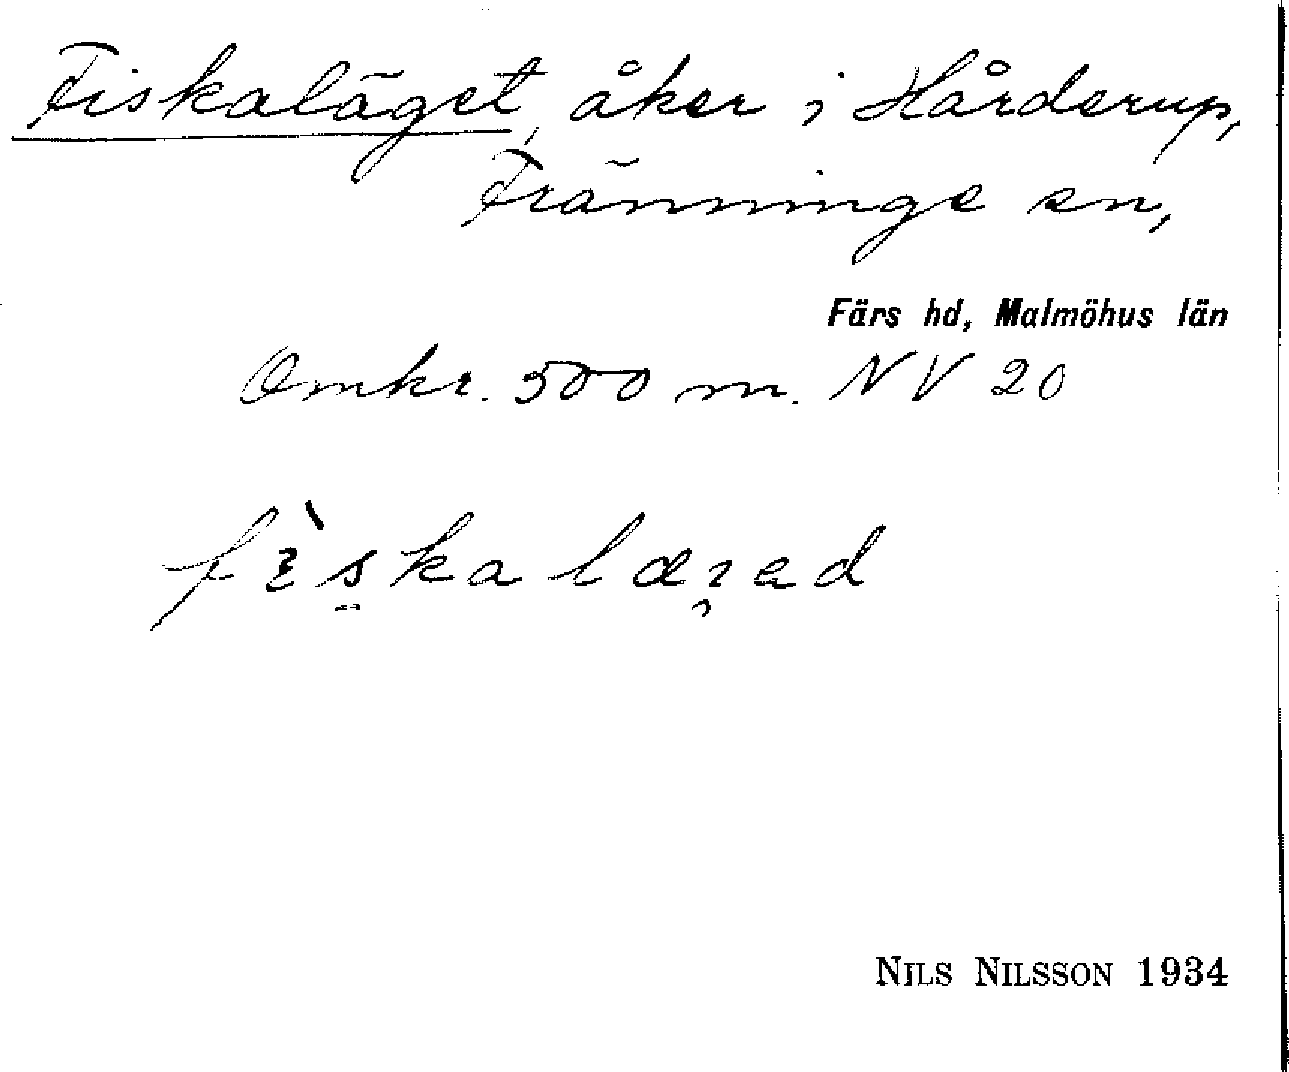 Fiskaläget, åker i Hårderup,
Fränninge sn,
Färs hd, Malmöhus län
Omkr. 500 m. NV 20
NILS NILSSON 1934